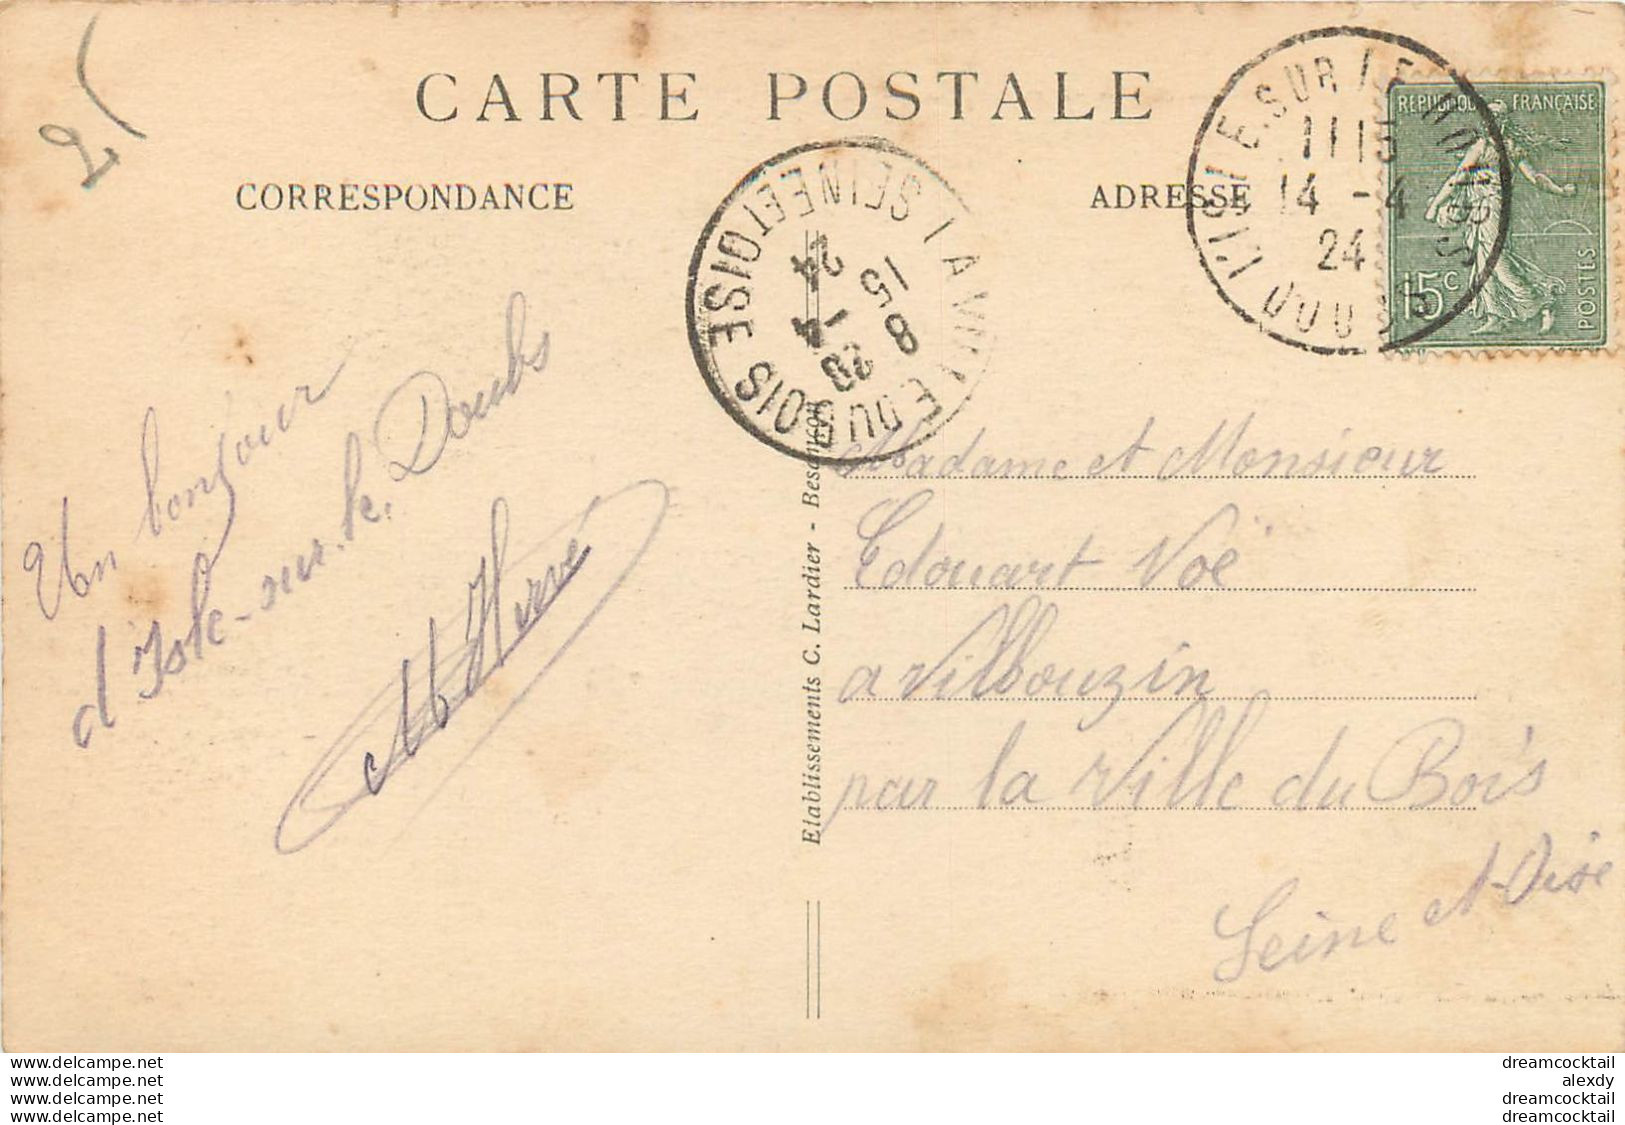 CARTE POSTALE
CORRESPONDANCE
ADRESSE
L'ISLE-SUR-LE-DOUBS
DOUBS
11 15
14 - 4
24
REPUBLIQUE FRANÇAISE
15c
POSTES
LA VILLE DU BOIS
SEINE ET OISE
8
15 - 4
24
Un bonjour
d'Isle-sur-le-Doubs
Hervé
Etablissements C. Lardier - Besançon
Madame et Monsieur
Edouart Voë
a Villbouzin
par la Ville du Bois
Seine et-Oise
delcampe.net
delcampe.net
delcampe.net
delcampe.net
dreamcocktail
alexdy
dreamcocktail
dreamcocktail